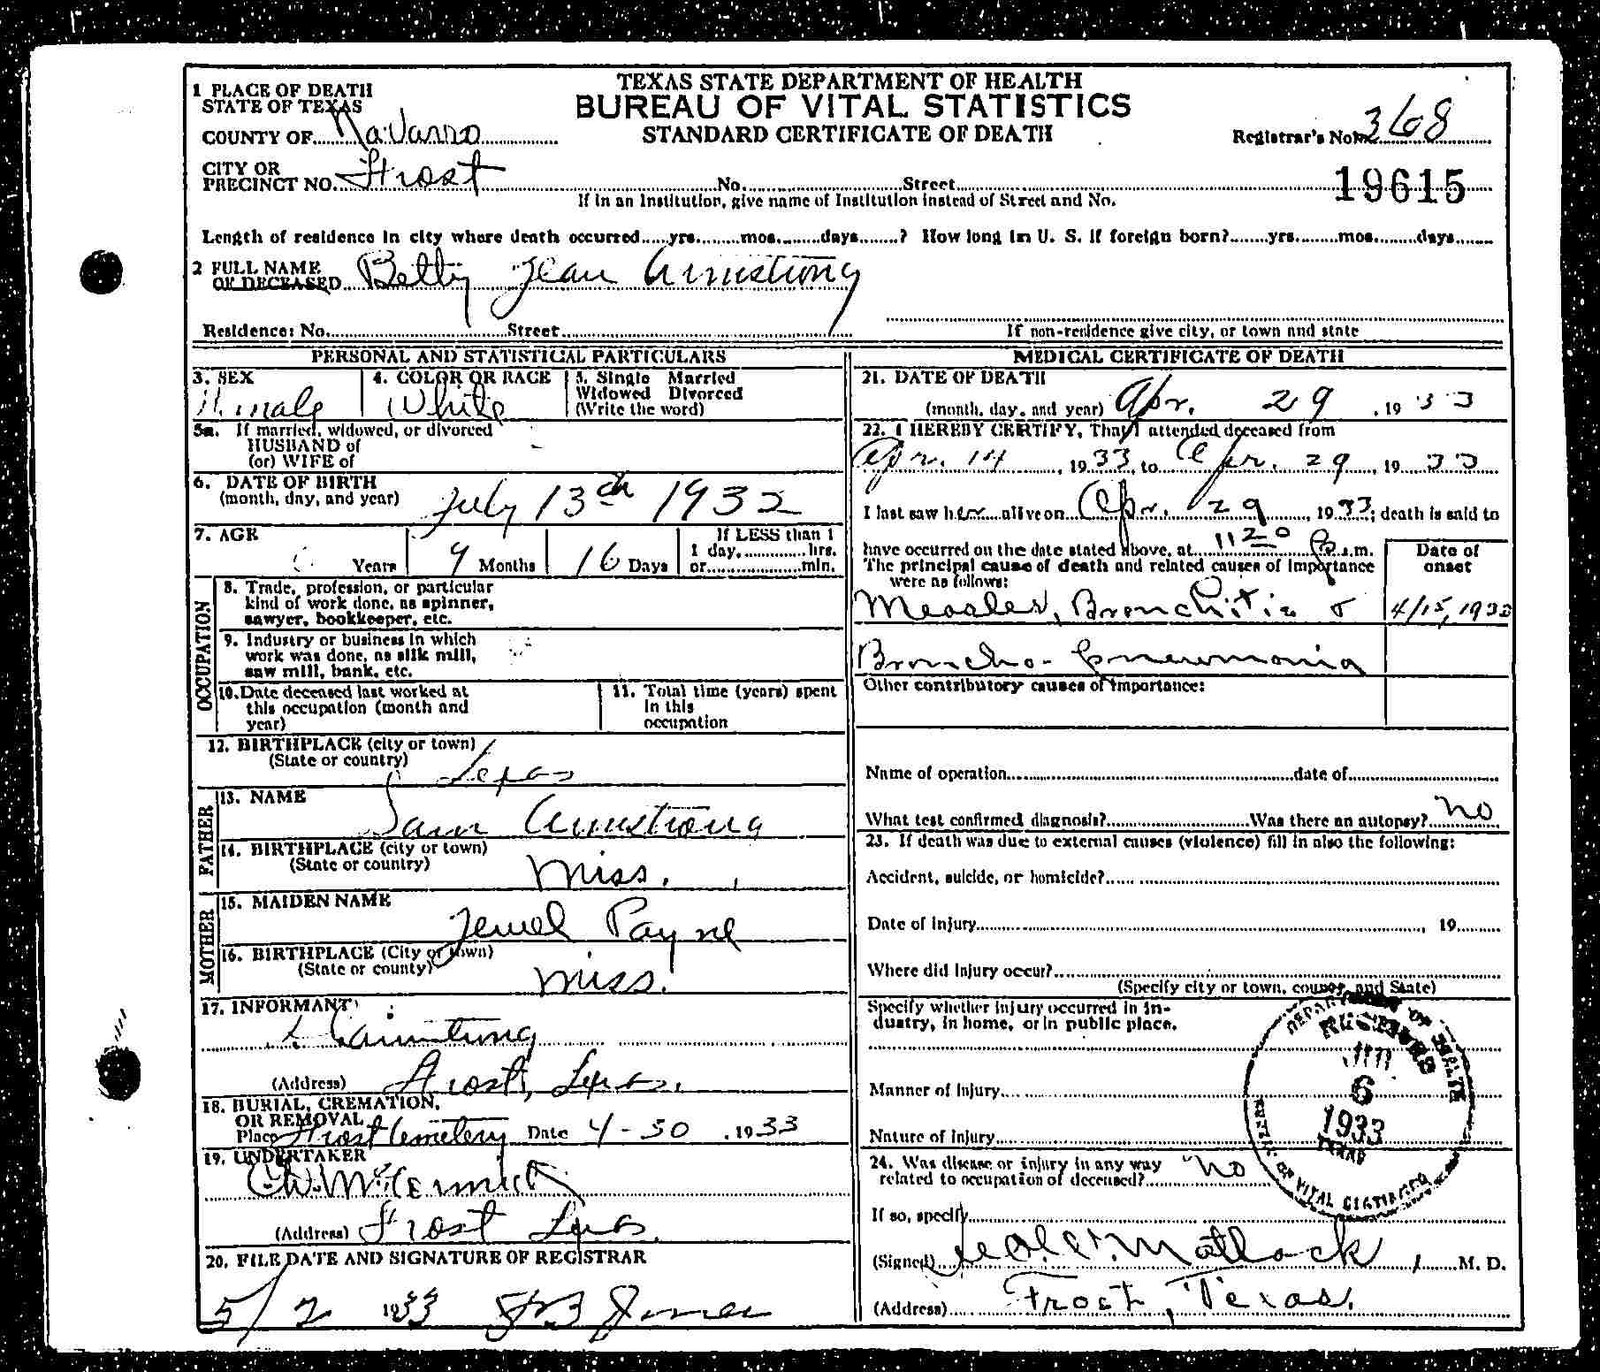 TEXAS STATE DEPARTMENT OF HEALTH
BUREAU OF VITAL STATISTICS
STANDARD CERTIFICATE OF DEATH
1 PLACE OF DEATH
STATE OF TEXAS
COUNTY OF Navarro
Registrar's No. 368
CITY OR
PRECINCT NO. Frost No. Street
19615
If in an Institution, give name of Institution instead of Street and No.
Length of residence in city where death occurred yrs. mos. days ? How long in U. S. if foreign born? yrs. mos. days
2 FULL NAME
OF DECEASED Betty Jean Armstrong
Residence: No. Street
If non-residence give city, or town and state
PERSONAL AND STATISTICAL PARTICULARS
3. SEX 4. COLOR OR RACE 5. Single Married
Widowed Divorced
(Write the word)
Female White
5a. If married, widowed, or divorced
HUSBAND of
(or) WIFE of
6. DATE OF BIRTH
(month, day, and year) July 13th 1932
7. AGE If LESS than 1
1 day, hrs.
Years 9 Months 16 Days or min.
OCCUPATION
8. Trade, profession, or particular
kind of work done, as spinner,
sawyer, bookkeeper, etc.
9. Industry or business in which
work was done, as silk mill,
saw mill, bank, etc.
10. Date deceased last worked at
this occupation (month and
year)
11. Total time (years) spent
in this
occupation
12. BIRTHPLACE (city or town)
(State or country) Texas
FATHER
13. NAME
Sam Armstrong
14. BIRTHPLACE (city or town)
(State or country) Miss.
MOTHER
15. MAIDEN NAME
Jewel Payne
16. BIRTHPLACE (City or town)
(State or county) Miss.
17. INFORMANT
Armstrong
(Address) Frost, Texas.
18. BURIAL, CREMATION,
OR REMOVAL
Place Frost Cemetery Date 4-30, 1933
19. UNDERTAKER
McCormick
(Address) Frost Texas.
20. FILE DATE AND SIGNATURE OF REGISTRAR
5/2 1933 Jones
MEDICAL CERTIFICATE OF DEATH
21. DATE OF DEATH
(month, day, and year) Apr. 29, 1933
22. I HEREBY CERTIFY, That I attended deceased from
Apr. 14, 1933, to Apr. 29, 1933
I last saw her alive on Apr. 29, 1933; death is said to
have occurred on the date stated above, at 1120 P.m.
The principal cause of death and related causes of importance
were as follows:
Date of
onset
Measles, Bronchitis & 4/15, 1933
Broncho-Pneumonia
Other contributory causes of importance:
Name of operation date of
What test confirmed diagnosis? Was there an autopsy? No
23. If death was due to external causes (violence) fill in also the following:
Accident, suicide, or homicide?
Date of injury, 19
Where did injury occur?
(Specify city or town, county, and State)
Specify whether injury occurred in in-
dustry, in home, or in public place.
Manner of Injury
Nature of Injury
24. Was disease or injury in any way
related to occupation of deceased? No
If so, specify
(Signed) Matlock, M. D.
(Address) Frost, Texas.
DEPARTMENT OF HEALTH
RECEIVED
6
1933
TEXAS
BUREAU OF VITAL STATISTICS